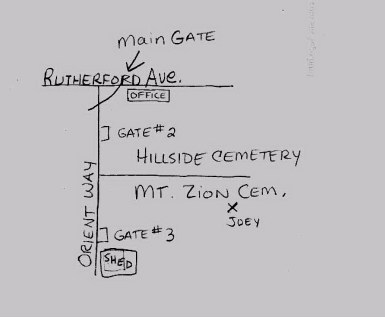 Main GATE
RUTHERFORD AVE.
OFFICE
GATE #2
HILLSIDE CEMETERY
ORIENT WAY
MT. ZION CEM.
X
JOEY
GATE #3
SHED